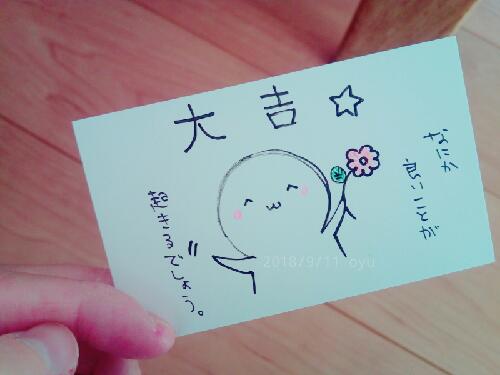 大吉☆
なにか
良いことが
起きるでしょう。
2018/9/11 oyu